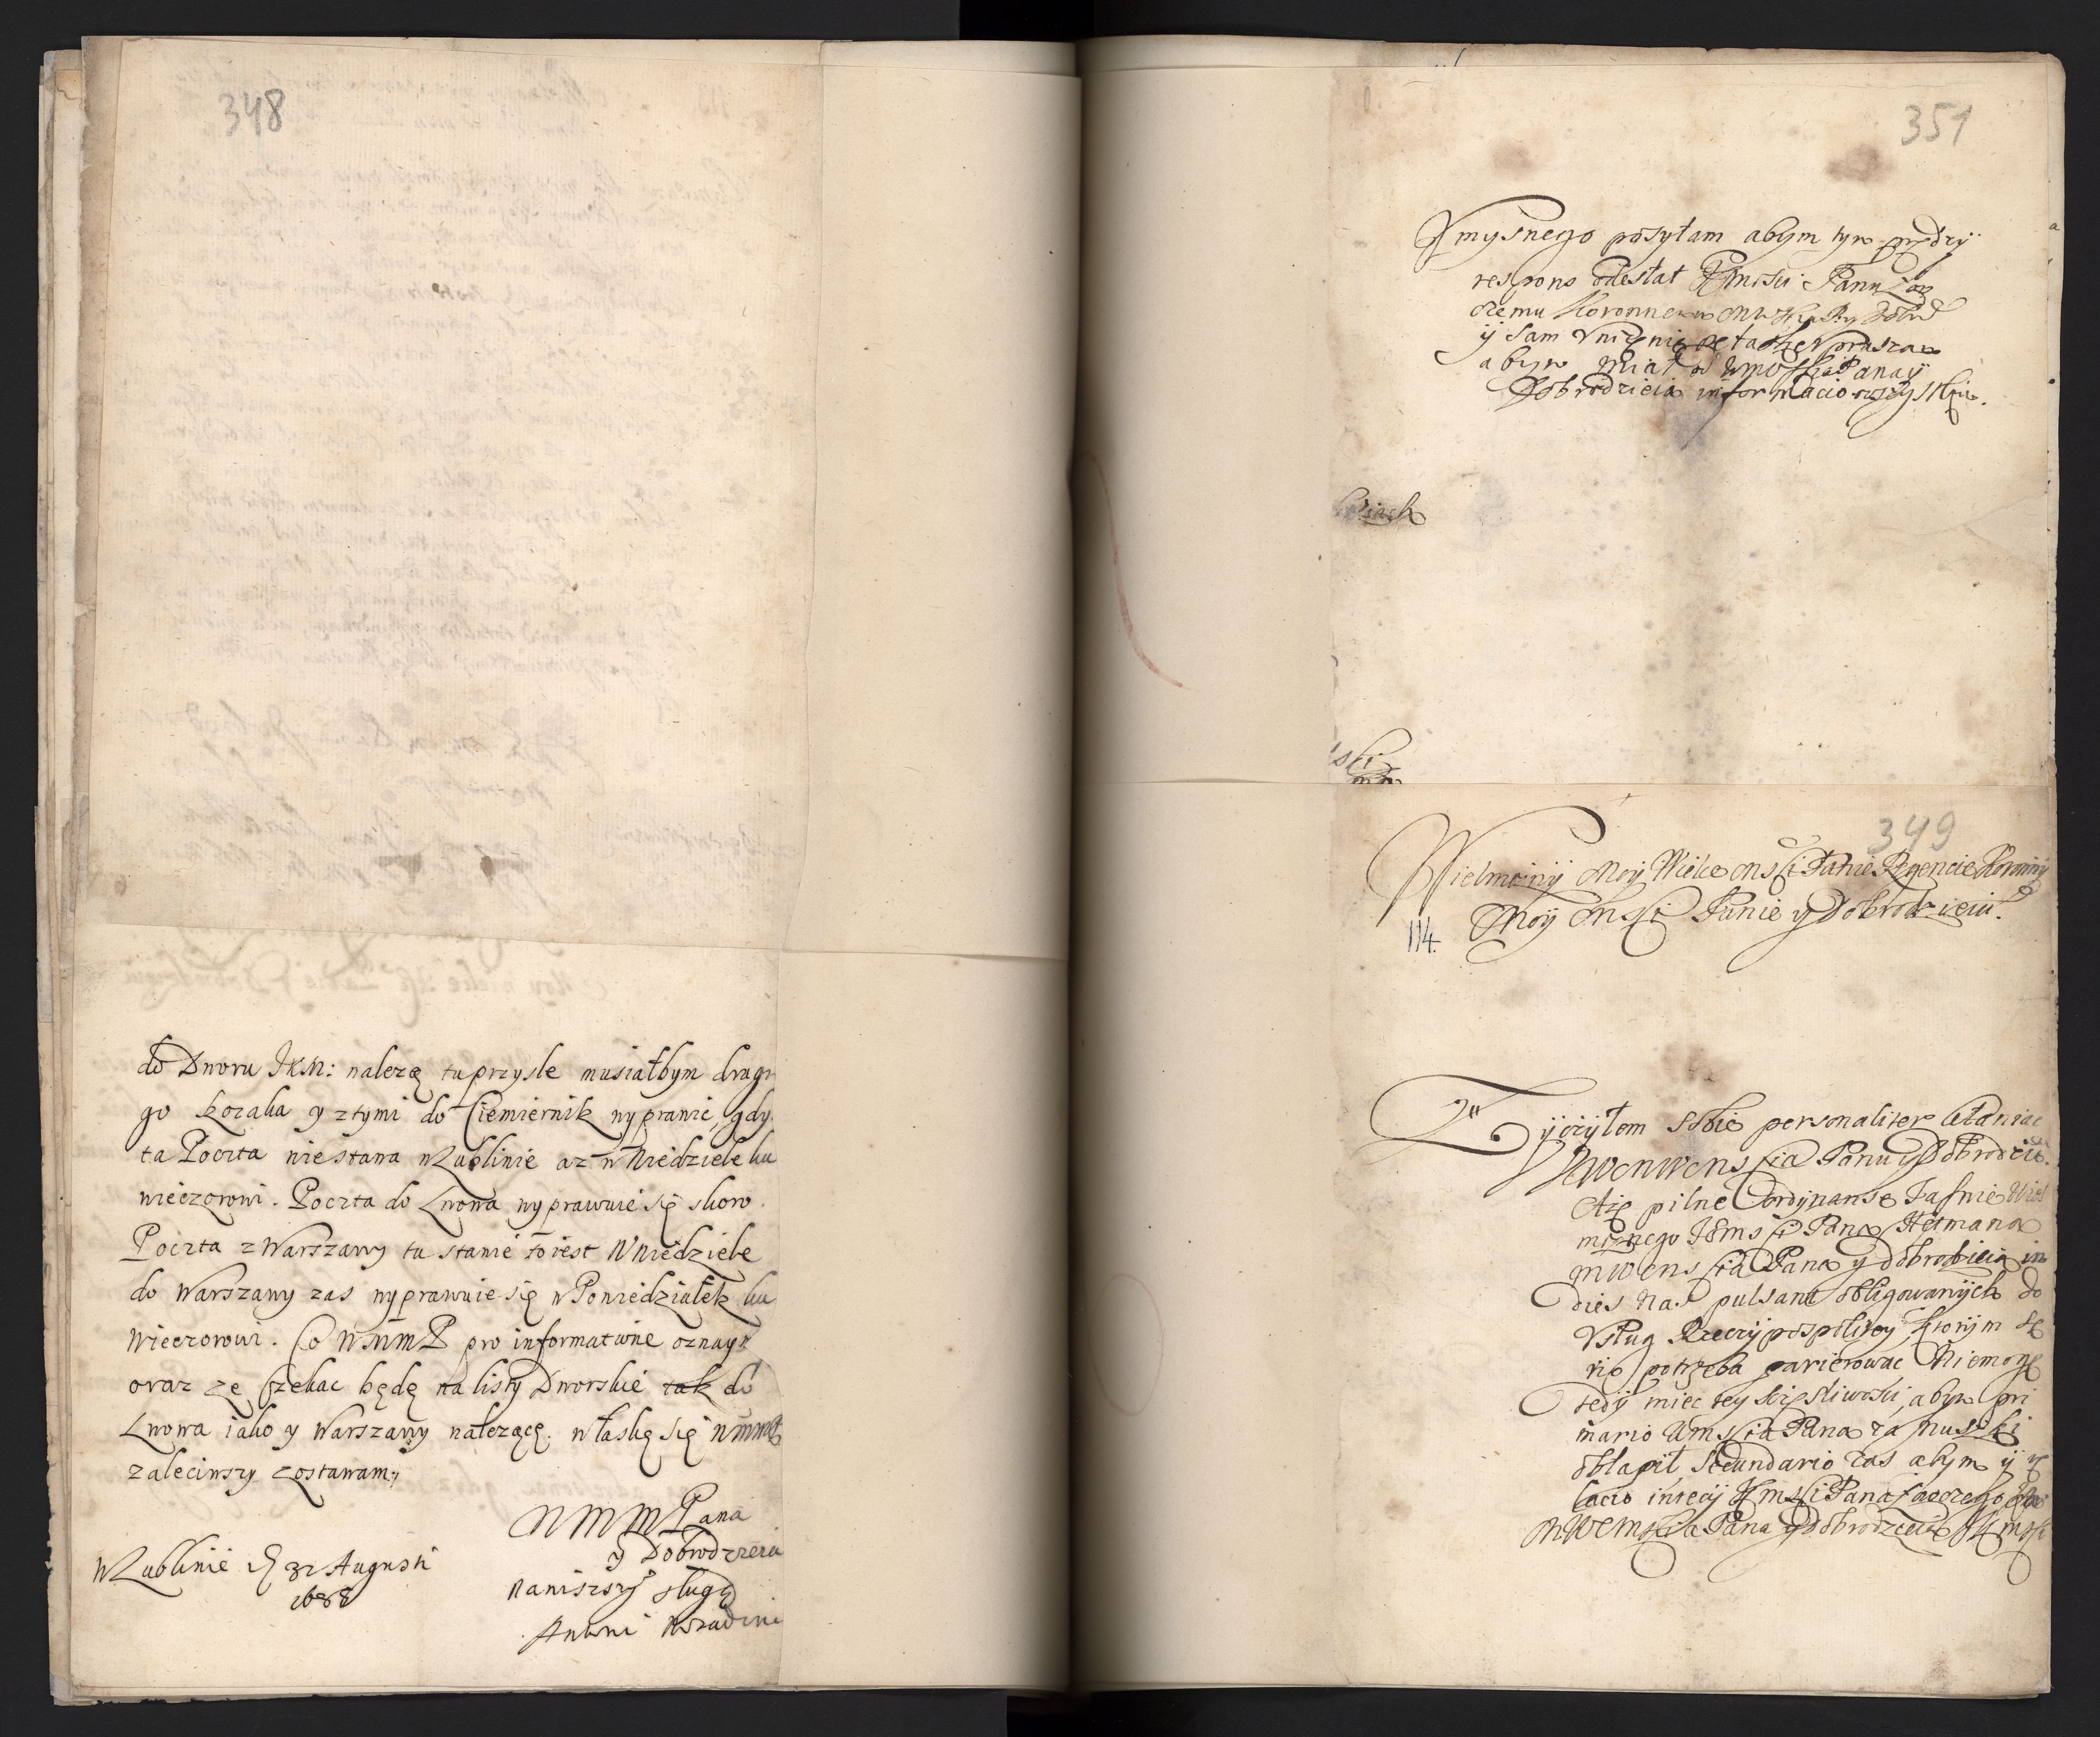 348
do Dworu JKM: nalezę tu przysle musiałbym drugi
go kozaka y z tymi do Ciemiernik wyprawic, gdy
ta Poczta nie stawa w Lublinie az w Niedziele ku
wieczorowi. Poczta do Lwowa wyprawuie się skoro
Poczta z Warszawy tu stanie to iest W niedziele
do Warszawy zas wyprawuie się w Poniedziałek ku
wieczorowi. Co WMMP pro informatione oznay
oraz ze czekac będę na listy Dworskie tak do
Lwowa iako y Warszawy nalezące. w łaskę się
zaleciwszy zostawam
WMMPana
y Dobrodzieia
naniszszy sługa
Antoni
w Lublinie d 31 Augusti
1688
351
Vmysnego posyłam abym tym prędzy
respons odesłał Jmsci Panu Łow
czemu Koronnemu
y sam vnizenie
abym miał od Pana y
Dobrodzieia informacio
ski
mp
349
Wielmozny Moy Wielce Msci Panie Regencie Koronny
Moy Msci Panie y Dobrodzieiu.
114.
Zyczyłem sobie personaliter
Pana y Dobrodzie
Aze pilne Ordynanse Jasnie Wiel
moznego Jemsci Pana Hetmana
Pana y dobrodzieia in
dies nas pulsant obligowanych do
Vsług Rzeczypospolitey, ktorym se
rio potrzeba parierowac Niemogę
tedy miec tey szczesliwosci, abym pri
mario Wmscia Pana za nuszki
obłapił, Secundario zas abym y
Jmsci Pana Łowczego
Pana y Dobrodzieia Jemsci